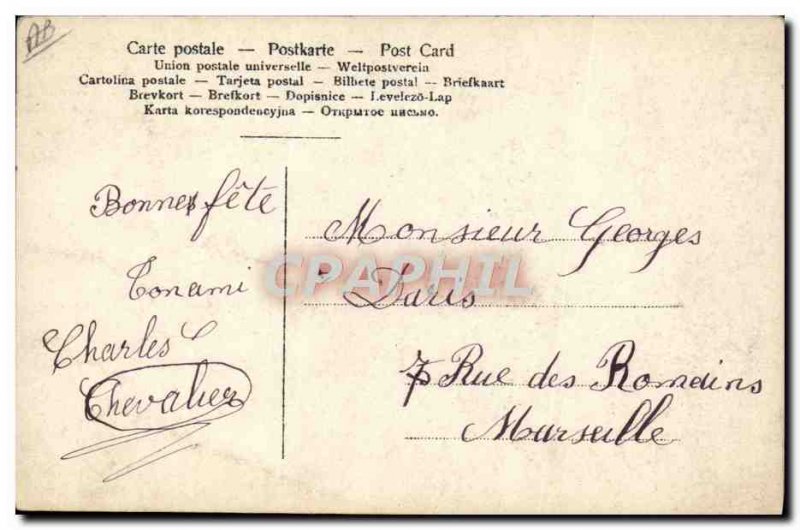 AB
Carte postale — Postkarte — Post Card
Union postale universelle — Weltpostverein
Cartolina postale — Tarjeta postal — Bilhete postal — Briefkaart
Brevkort — Brefkort — Dopisnice — Levelező-Lap
Karta korespondencyjna — Открытое письмо.
Bonne fête
Ton ami
Charles C
Chevalier
Monsieur Georges
Daris
7 Rue des Romains
Marseille
CPAPHIL